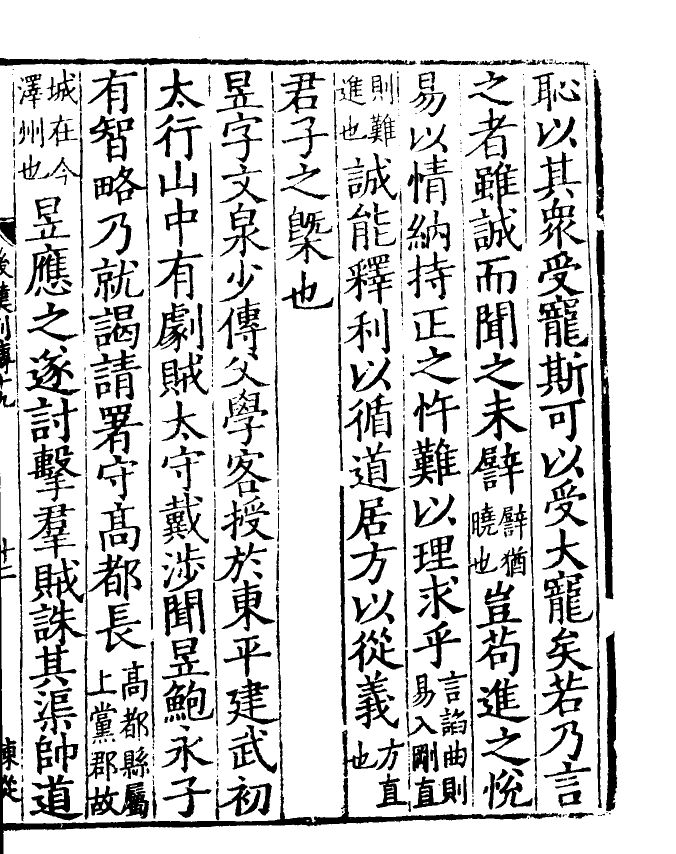 恥以其衆受寵斯可以受大寵矣若乃言
之者雖誠而聞之未譬譬猶曉也豈苟進之悅
易以情納持正之忤難以理求乎言諂曲則易入剛直
則難進也誠能釋利以循道居方以從義方直也
君子之槩也
昱字文泉少傳父學客授於東平建武初
太行山中有劇賊太守戴涉聞昱鮑永子
有智略乃就謁請署守髙都長髙都縣屬上黨郡故
城在今澤州也昱應之遂討擊羣賊誅其渠帥道
後漢列傳十九
十二